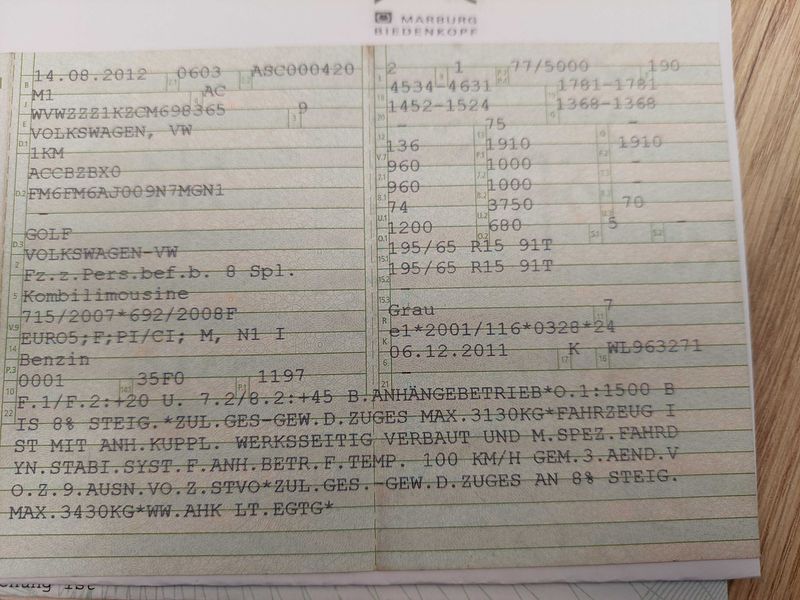 MARBURG
BIEDENKOPF
14.08.2012 0603 ASC000420
M1 AC
WVWZZZ1KZCM698365 9
VOLKSWAGEN, VW
1KM
ACCBZBX0
FM6FM6AJ009N7MGN1
-
GOLF
VOLKSWAGEN-VW
Fz.z.Pers.bef.b. 8 Spl.
Kombilimousine
715/2007*692/2008F
EURO5;F;PI/CI; M, N1 I
Benzin
0001 35F0 1197
2 1 77/5000 190
4534-4631 1781-1781
1452-1524 1368-1368
- 75 -
136 1910 1910
960 1000 -
960 1000 -
74 3750 70
1200 680 5 -
195/65 R15 91T
195/65 R15 91T
-
Grau 7
e1*2001/116*0328*24
06.12.2011 K WL963271
-
F.1/F.2:+20 U. 7.2/8.2:+45 B.ANHÄNGEBETRIEB*O.1:1500 B
IS 8% STEIG.*ZUL.GES-GEW.D.ZUGES MAX.3130KG*FAHRZEUG I
ST MIT ANH.KUPPL. WERKSSEITIG VERBAUT UND M.SPEZ.FAHRD
YN.STABI.SYST.F.ANH.BETR.F.TEMP. 100 KM/H GEM.3.AEND.V
O.Z.9.AUSN.VO.Z.STVO*ZUL.GES.-GEW.D.ZUGES AN 8% STEIG.
MAX.3430KG*WW.AHK LT.EGTG*